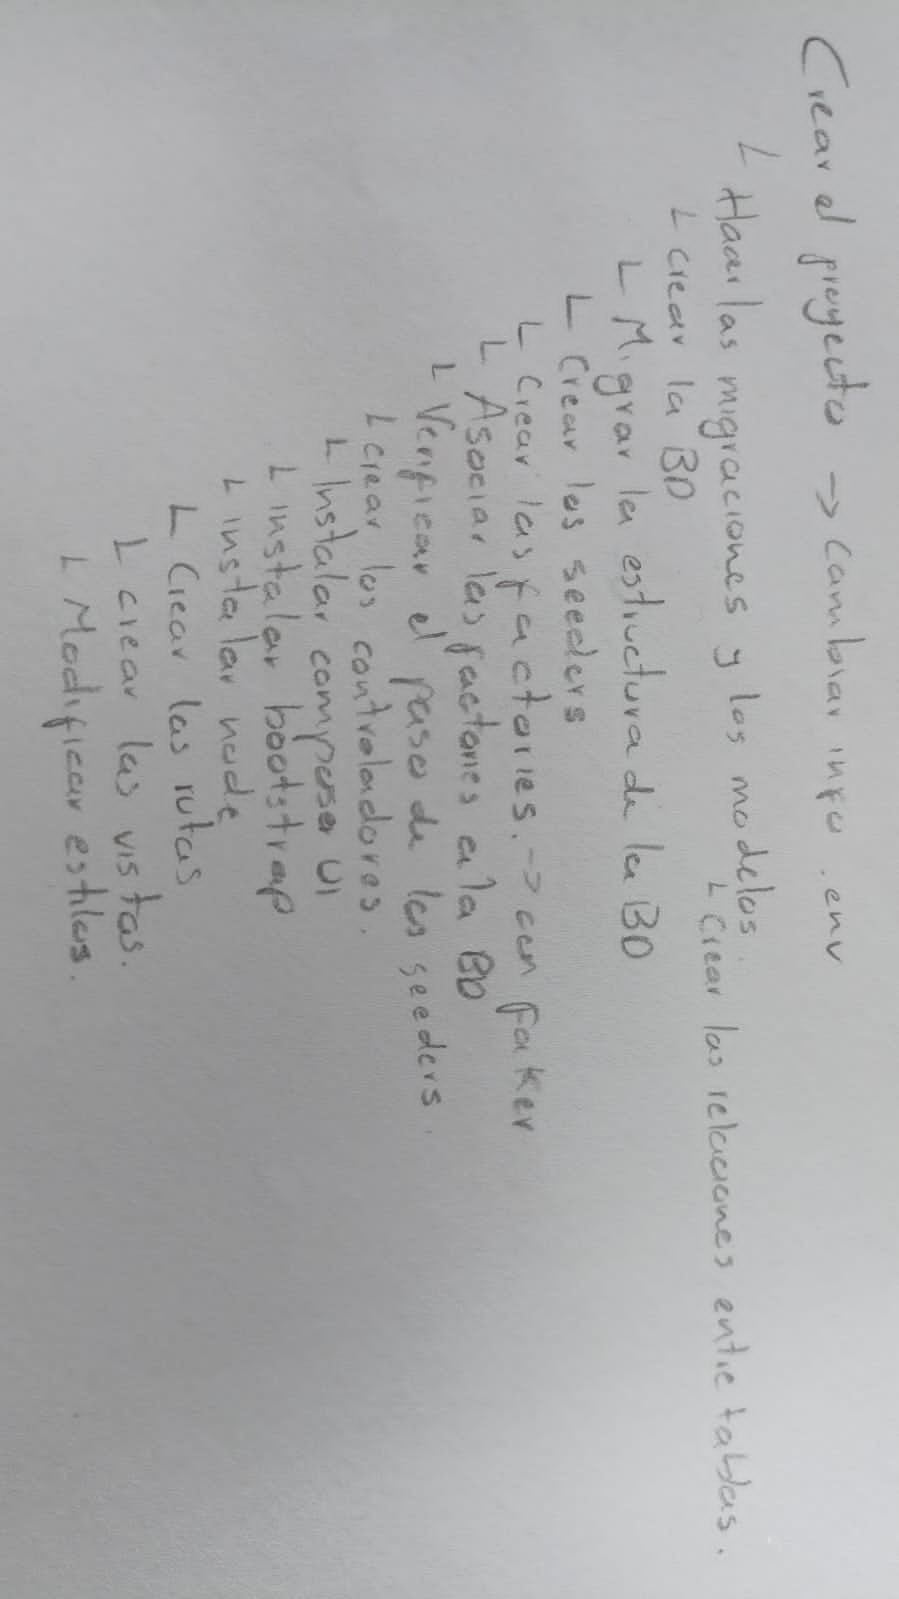 Crear el proyecto → Cambiar info .env
└ Hacer las migraciones y los modelos.
└ Crear las relaciones entre tablas.
└ crear la BD
└ Migrar la estructura de la BD
└ Crear los seeders
└ Crear las factories. → con Faker
└ Asociar las factories a la BD
└ Verificar el paso de los seeders.
└ crear los controladores.
└ Instalar composer UI
└ instalar bootstrap
└ instalar node
└ Crear las rutas
└ crear las vistas.
└ Modificar estilos.